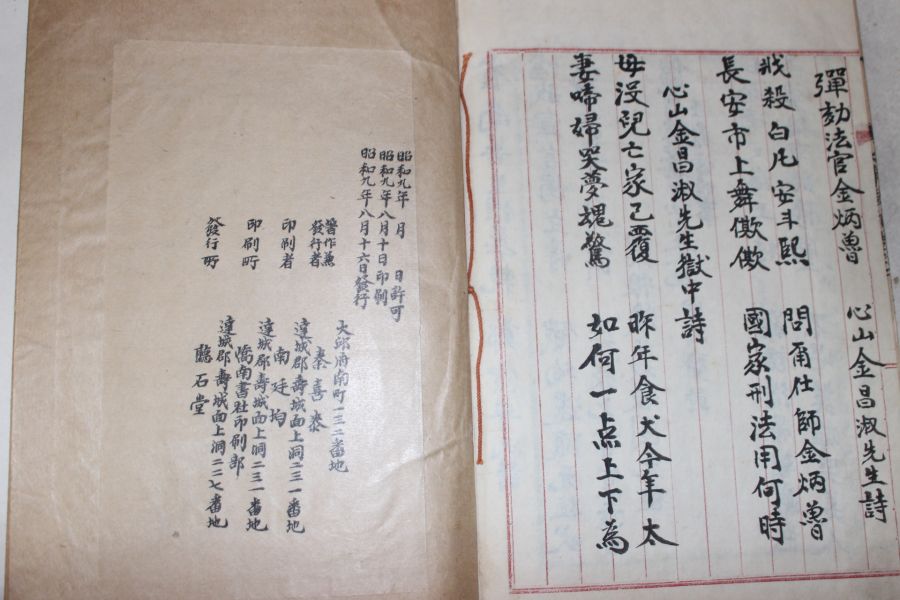 彈劾法官金炳魯 心山金昌淑先生詩
戕殺白凡安斗熙 問爾仕師金炳魯
長安市上舞僛僛 國家刑法用何時
心山金昌淑先生獄中詩
母沒兒亡家已覆 昨年食犬今年太
妻啼婦哭夢魂驚 如何一点上下為
昭和九年 月 日許可
昭和九年八月十日印刷
昭和九年八月十六日發行
大邱府南町一三二番地
著作兼
發行者 秦喜泰
達城郡壽城面上洞二三一番地
印刷者 南廷均
達城郡壽城面上洞二三一番地
印刷所 嶠南書社印刷部
達城郡壽城面上洞二二七番地
發行所 臨石堂